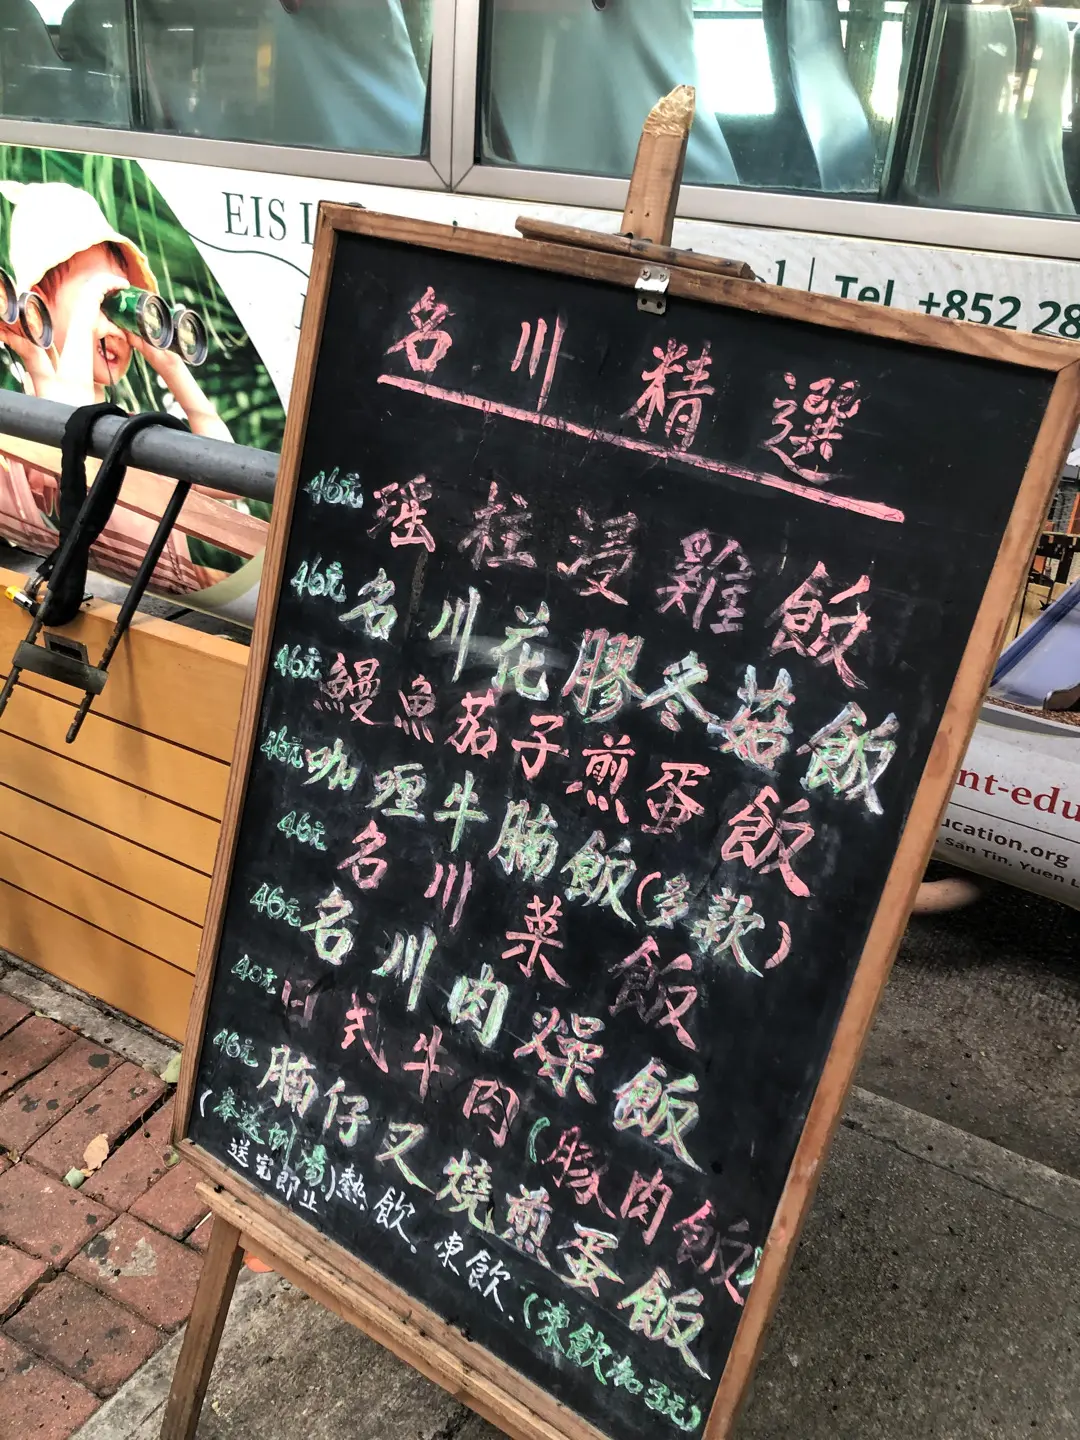 EIS
Tel. +852 28
名川精選
46元 瑶柱浸雞飯
46元 名川花膠冬菇飯
46元 鰻魚茄子煎蛋飯
46元 咖喱牛腩飯(多款)
46元 名川菜飯
46元 名川肉燥飯
40元 日式牛肉(豚肉飯)
46元 腩仔叉燒煎蛋飯
(奉送例湯)熱飲、凍飲、(凍飲加3元)
送完即止
nt-edu
ucation.org
San Tin, Yuen L